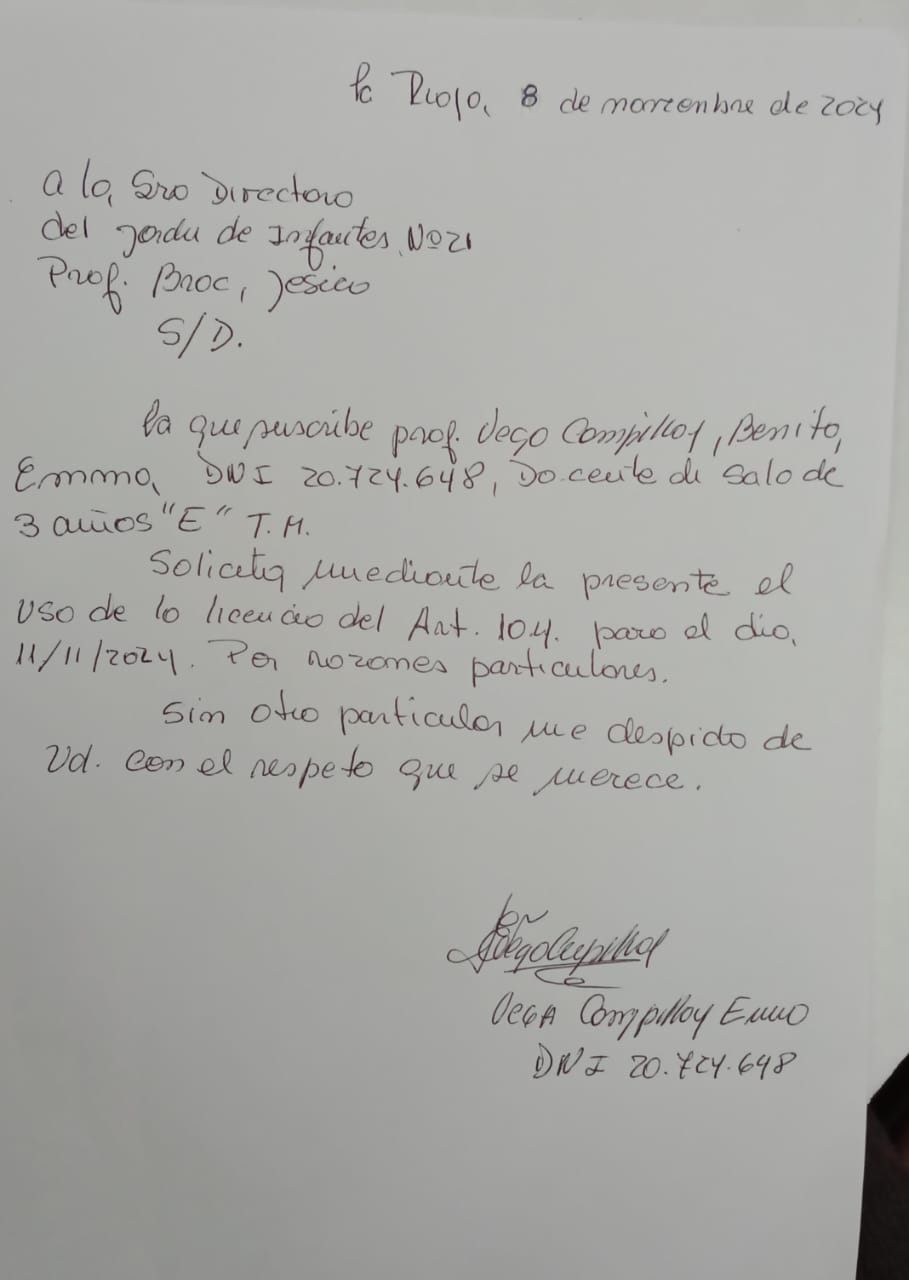 La Rioja, 8 de noviembre de 2024
a la Sra Directora
del Jardin de Infantes Nº21
Prof. Broc, Jesica
S/D.
La que suscribe prof. Vega Campillay, Benita,
Emma, DNI 20.724.648, Docente de Sala de
3 años "E" T.M.
Solicita mediante la presente el
uso de la licencia del Art. 104. para el dia,
11/11/2024. Por razones particulares.
Sin otro particular me despido de
Ud. con el respeto que se merece.
VEGA Campillay Emma
DNI 20.724.648